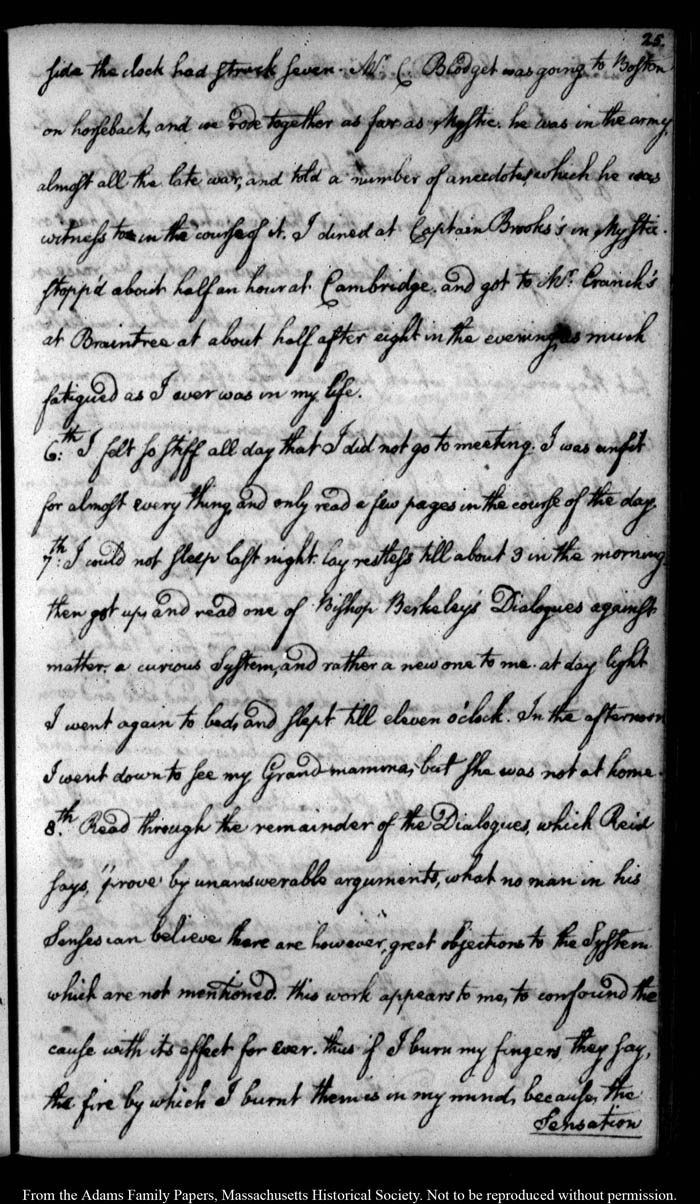 25.
side the clock had struck seven. Mr. C. Blodget was going to Boston
on horseback, and we rode together as far as Mystic. he was in the army
almost all the late war, and told a number of anecdotes, which he was
witness to in the course of it. I dined at Captain Brooks's in Mystic.
stopp'd about half an hour at Cambridge, and got to Mr. Cranch's
at Braintree at about half after eight in the evening, as much
fatigued as I ever was in my life.
6:th I felt so stiff all day that I did not go to meeting. I was unfit
for almost every thing and only read a few pages in the course of the day.
7:th I could not sleep last night. lay restless till about 3 in the morning.
then got up, and read one of Bishop Berkeley's Dialogues against
matter. a curious System, and rather a new one to me. at day light
I went again to bed, and slept till eleven o'clock. In the afternoon
I went down to see my Grand-mamma, but she was not at home.
8.th Read through the remainder of the Dialogues, which Reid
says, "prove by unanswerable arguments, what no man in his
Senses can believe" there are however, great objections to the System
which are not mentioned. this work appears to me, to confound the
cause with its effect for ever. thus if I burn my fingers, they say,
the fire by which I burnt them is in my mind, because, the
Sensation
From the Adams Family Papers, Massachusetts Historical Society. Not to be reproduced without permission.